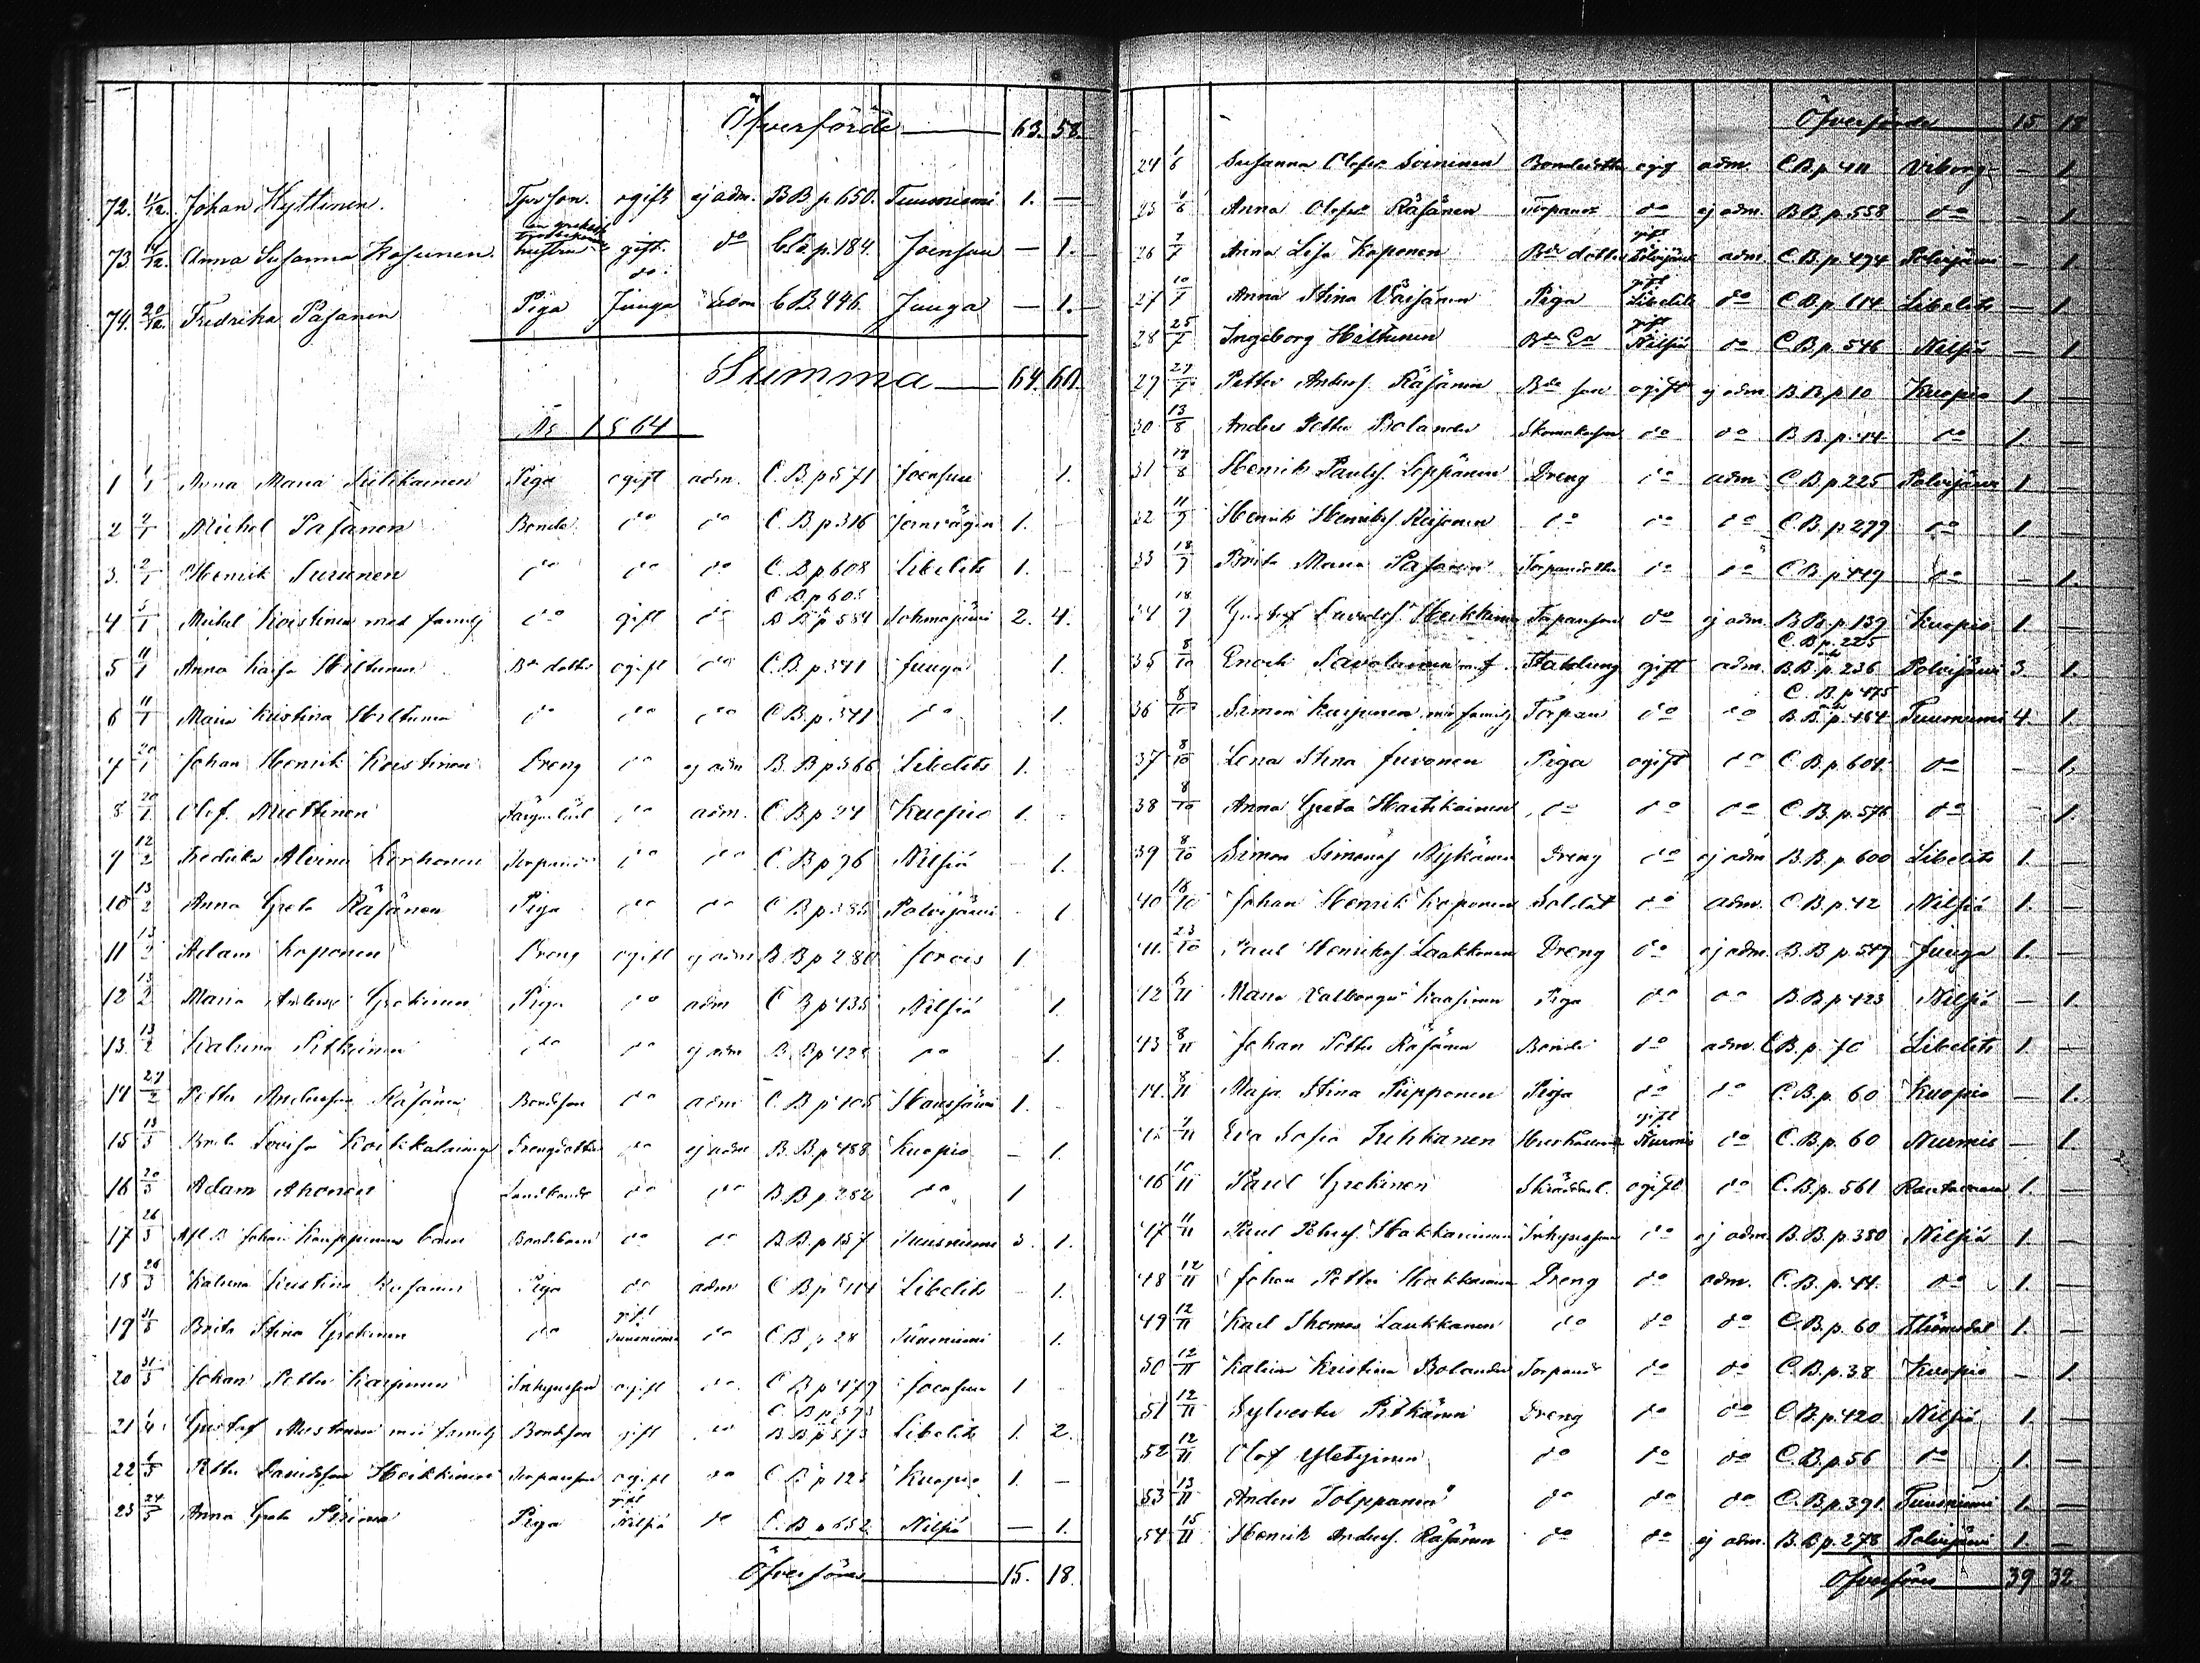 Öfverförde 63. 58.
72. 11/12. Johan Hyttinen. ogift ej adm. B B p. 650. Tuusniemi 1. —
73 14/12. Anna Susanna Kosunen. hustru gift. do p. 184. Joensuu — 1.
74. 20/12. Fredrika Pasanen Piga Juuga adm C B. 446. Juuga — 1.
Summa — 64. 61.
År 1864
1 1/1 Anna Maria Piga ogift adm. C. B. p 571 Joensuu 1.
2 2/1 Michel Pasanen Bonde do do C. B p 316 1.
3. 2/1 Henrik Turunen do do do C. B p 608 Libelits 1.
C B p 605
4 5/1 Michel Koistinen med familj do gift do B B p 554 Tohmajärvi 2. 4.
5 11/1 Anna Kaisa Hiltunen Bde dotter ogift do C. B. p. 341 Juuga 1.
6 11/1 Maria Kristina Hiltunen do do do C B p. 341 do 1.
7 20/1 Johan Henrik Koistinen Dreng do ej adm B. B p 366 Libelits 1.
8 20/1 Olof Miettinen do adm. C. B p 24 Kuopio 1.
9 12/2 Fredrika Alvina Korhonen do do C. B p 96 Nilsiä 1.
10 13/2 Anna Greta Räsänen Piga do do C B p 385 Polvijärvi 1
11 13/2 Adam Koponen Dreng ogift ej adm B B p 280 Jorois 1.
12 13/2 Maria Piga do adm C B p 435 Nilsiä 1.
13. 13/2 Katrina Pitkänen do do ej adm B. B p 425 do 1.
14 27/2 Petter Andersson Räsänen Bondeson do adm C. B p 105 1.
15 13/3 Brita Lovisa Drengdotter do ej adm B. B p 488 Kuopio — 1.
16 20/3 Adam Ahonen do do B B p 282 do 1
17 26/3 Johan Kauppinens barn Bondebarn do do B B p 137 Tuusniemi 3. 1.
18 26/3 Katrina Kristina Piga do adm C B p 414 Libelits 1.
gift
19 31/3 Brita Stina do Tuusniemi do C B p 28 Tuusniemi 1.
20 31/3 Johan Petter Karjinen Inhyseson ogift do. C B p 479 Joensuu 1
C B p 593
21 1/4 Gustaf Mustonen med familj Bondeson gift do B B p 573 Libelits 1. 2.
22 6/5 Petter Davidsson Heikkinen Torpareson ogift do C B p 123 Kuopio 1. —
gift
23 24/5 Anna Greta Piga Nilsiä do C. B p 652 Nilsiä — 1.
Öfverföres 15. 18.
Öfverförde 15 18
24 1/6 Susanna Olofsdr Soininen Bondedotter ogif adm. C B. p 411 Viborg — 1.
25 6/6 Anna Olofsdr Räsänen Torparedr do ej adm. B B. p. 558 do — 1.
gift
26 7/7 Anna Lisa Koponen Bde dotter Polvijärvi adm. C. B. p. 494 Polvijärvi — 1.
gift
27 10/7 Anna Stina Väisänen Piga Libelits do C B. p 614 Libelits — 1
gift
28 25/7 Ingeborg Hiltunen Nilsiä do C. B. p. 546 Nilsiä — 1
29 27/7 Petter Anders. Räsänen Bde son ogift ej adm B. B. p 10 Kuopio 1 —
30 13/8 Anders Petter Bolander Skomakareson do do B B. p. 14 do 1. —
31 17/8 Henrik Paulss. Leppänen Dreng do adm C. B. p 225 Polvijärvi 1 —
32 11/9 Henrik Henrikss. Räisänen do do do C. B. p 277 do 1 —
33 18/9 Brita Maria Pasanen Torparedotter do do C B. p 449 do — 1.
34 18/9 Gustaf Davidss. Heikkinen Torpareson do ej adm. B B. p. 139 Kuopio 1. —
C. B p. 225
35 8/10 Enoch Savolainen m. f. gift adm. B B. p. 236 Polvijärvi 3. 1.
C. B. p 475
36 8/10 Simon Karjunen med familj Torpare do do B. B. p. 454 Tuusniemi 4. 1.
37 8/10 Lena Stina Juvonen Piga ogift do C. B. p. 604. do — 1.
38 8/10 Anna Greta Hartikainen do do do C. B. p. 576 do — 1.
39 8/10 Simon Simonss Nykänen Dreng do ej adm B. B. p. 600 Libelits 1. —
40 16/10 Johan Henrik Koponen Soldat do adm. C. B. p. 42 Nilsiä 1. —
41. 23/10 Paul Henrikss. Laakkonen Dreng do ej adm. B. B p. 549 Juuga 1. —
42 6/11 Maria Valborg Kaasinen Piga do do B. B. p. 423 Nilsiä — 1.
43 8/11 Johan Petter Räsänen Bonde do adm. C. B. p. 70 Libelits 1. —
44. 8/11 Maja Stina Piipponen Piga do do C. B. p. 60 Kuopio — 1.
gift
45 9/11 Eva Sofia Tuhkanen Nurmis do C. B. p. 60 Nurmis — 1.
46 10/11 Paul ogift do C. B. p. 561 Rautavaara 1. —
47 11/11 Paul Petters. Hakkarainen Inhyseson do ej adm. B. B. p. 380 Nilsiä 1. —
48 12/11 Johan Petter Hakkarainen Dreng do adm. C. B. p. 44. do 1. —
49 12/11 Karl Thomas Laukkanen do do do C. B. p. 60 1. —
50 12/11 Katrina Kristina Bolander Torparedr do do C. B. p. 38 Kuopio — 1.
51 12/11 Sylvester Pitkänen Dreng do do C. B. p. 420 Nilsiä 1. —
52 12/11 Olof do do do C. B. p. 56 do 1. —
53 13/11 Anders Tolppanen do do do C. B. p. 391. Tuusniemi 1. —
54 15/11 Henrik Anderss. Räsänen do do ej adm. B. B p. 278 Polvijärvi 1. —
Öfverföres 39 32